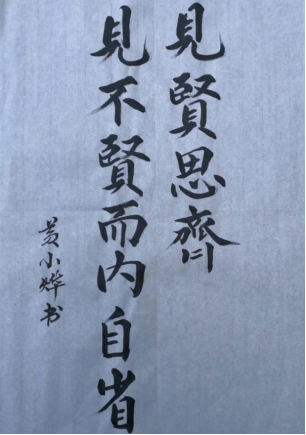 見賢思齊
見不賢而内自省
黄小烨书